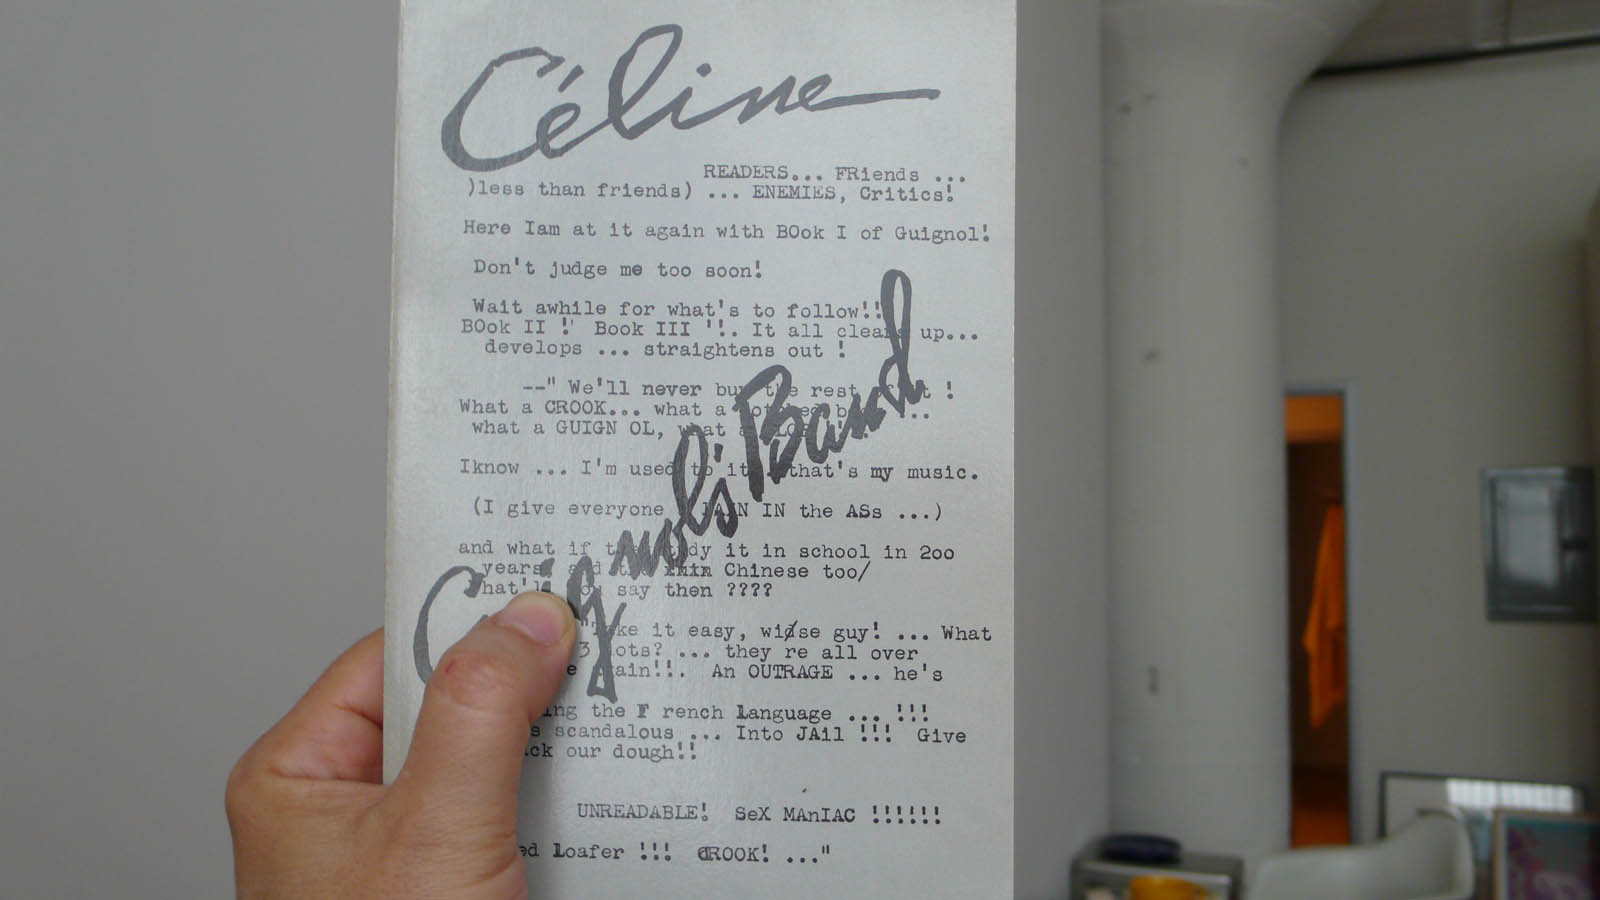 Céline
READERS... FRiends ...
)less than friends) ... ENEMIES, Critics!
Here Iam at it again with BOok I of Guignol!
Don't judge me too soon!
Wait awhile for what's to follow!!
BOok II !' Book III '!. It all clears up...
develops ... straightens out !
--" We'll never buy the rest of it !
What a CROOK... what a botched
what a GUIGN OL, what a
Iknow ... I'm used to it that's my music.
(I give everyone IN the ASs ...)
and what if they study it in school in 2oo
years, and the xxin Chinese too/
hat'll you say then ????
"Take it easy, widse guy! ... What
3 dots? ... they re all over
An OUTRAGE ... he's
the F rench Language ... !!!
scandalous ... Into JAil !!! Give
our dough!!
UNREADABLE! SeX MAnIAC !!!!!!
Loafer !!! CROOK! ..."
Guignol's Band